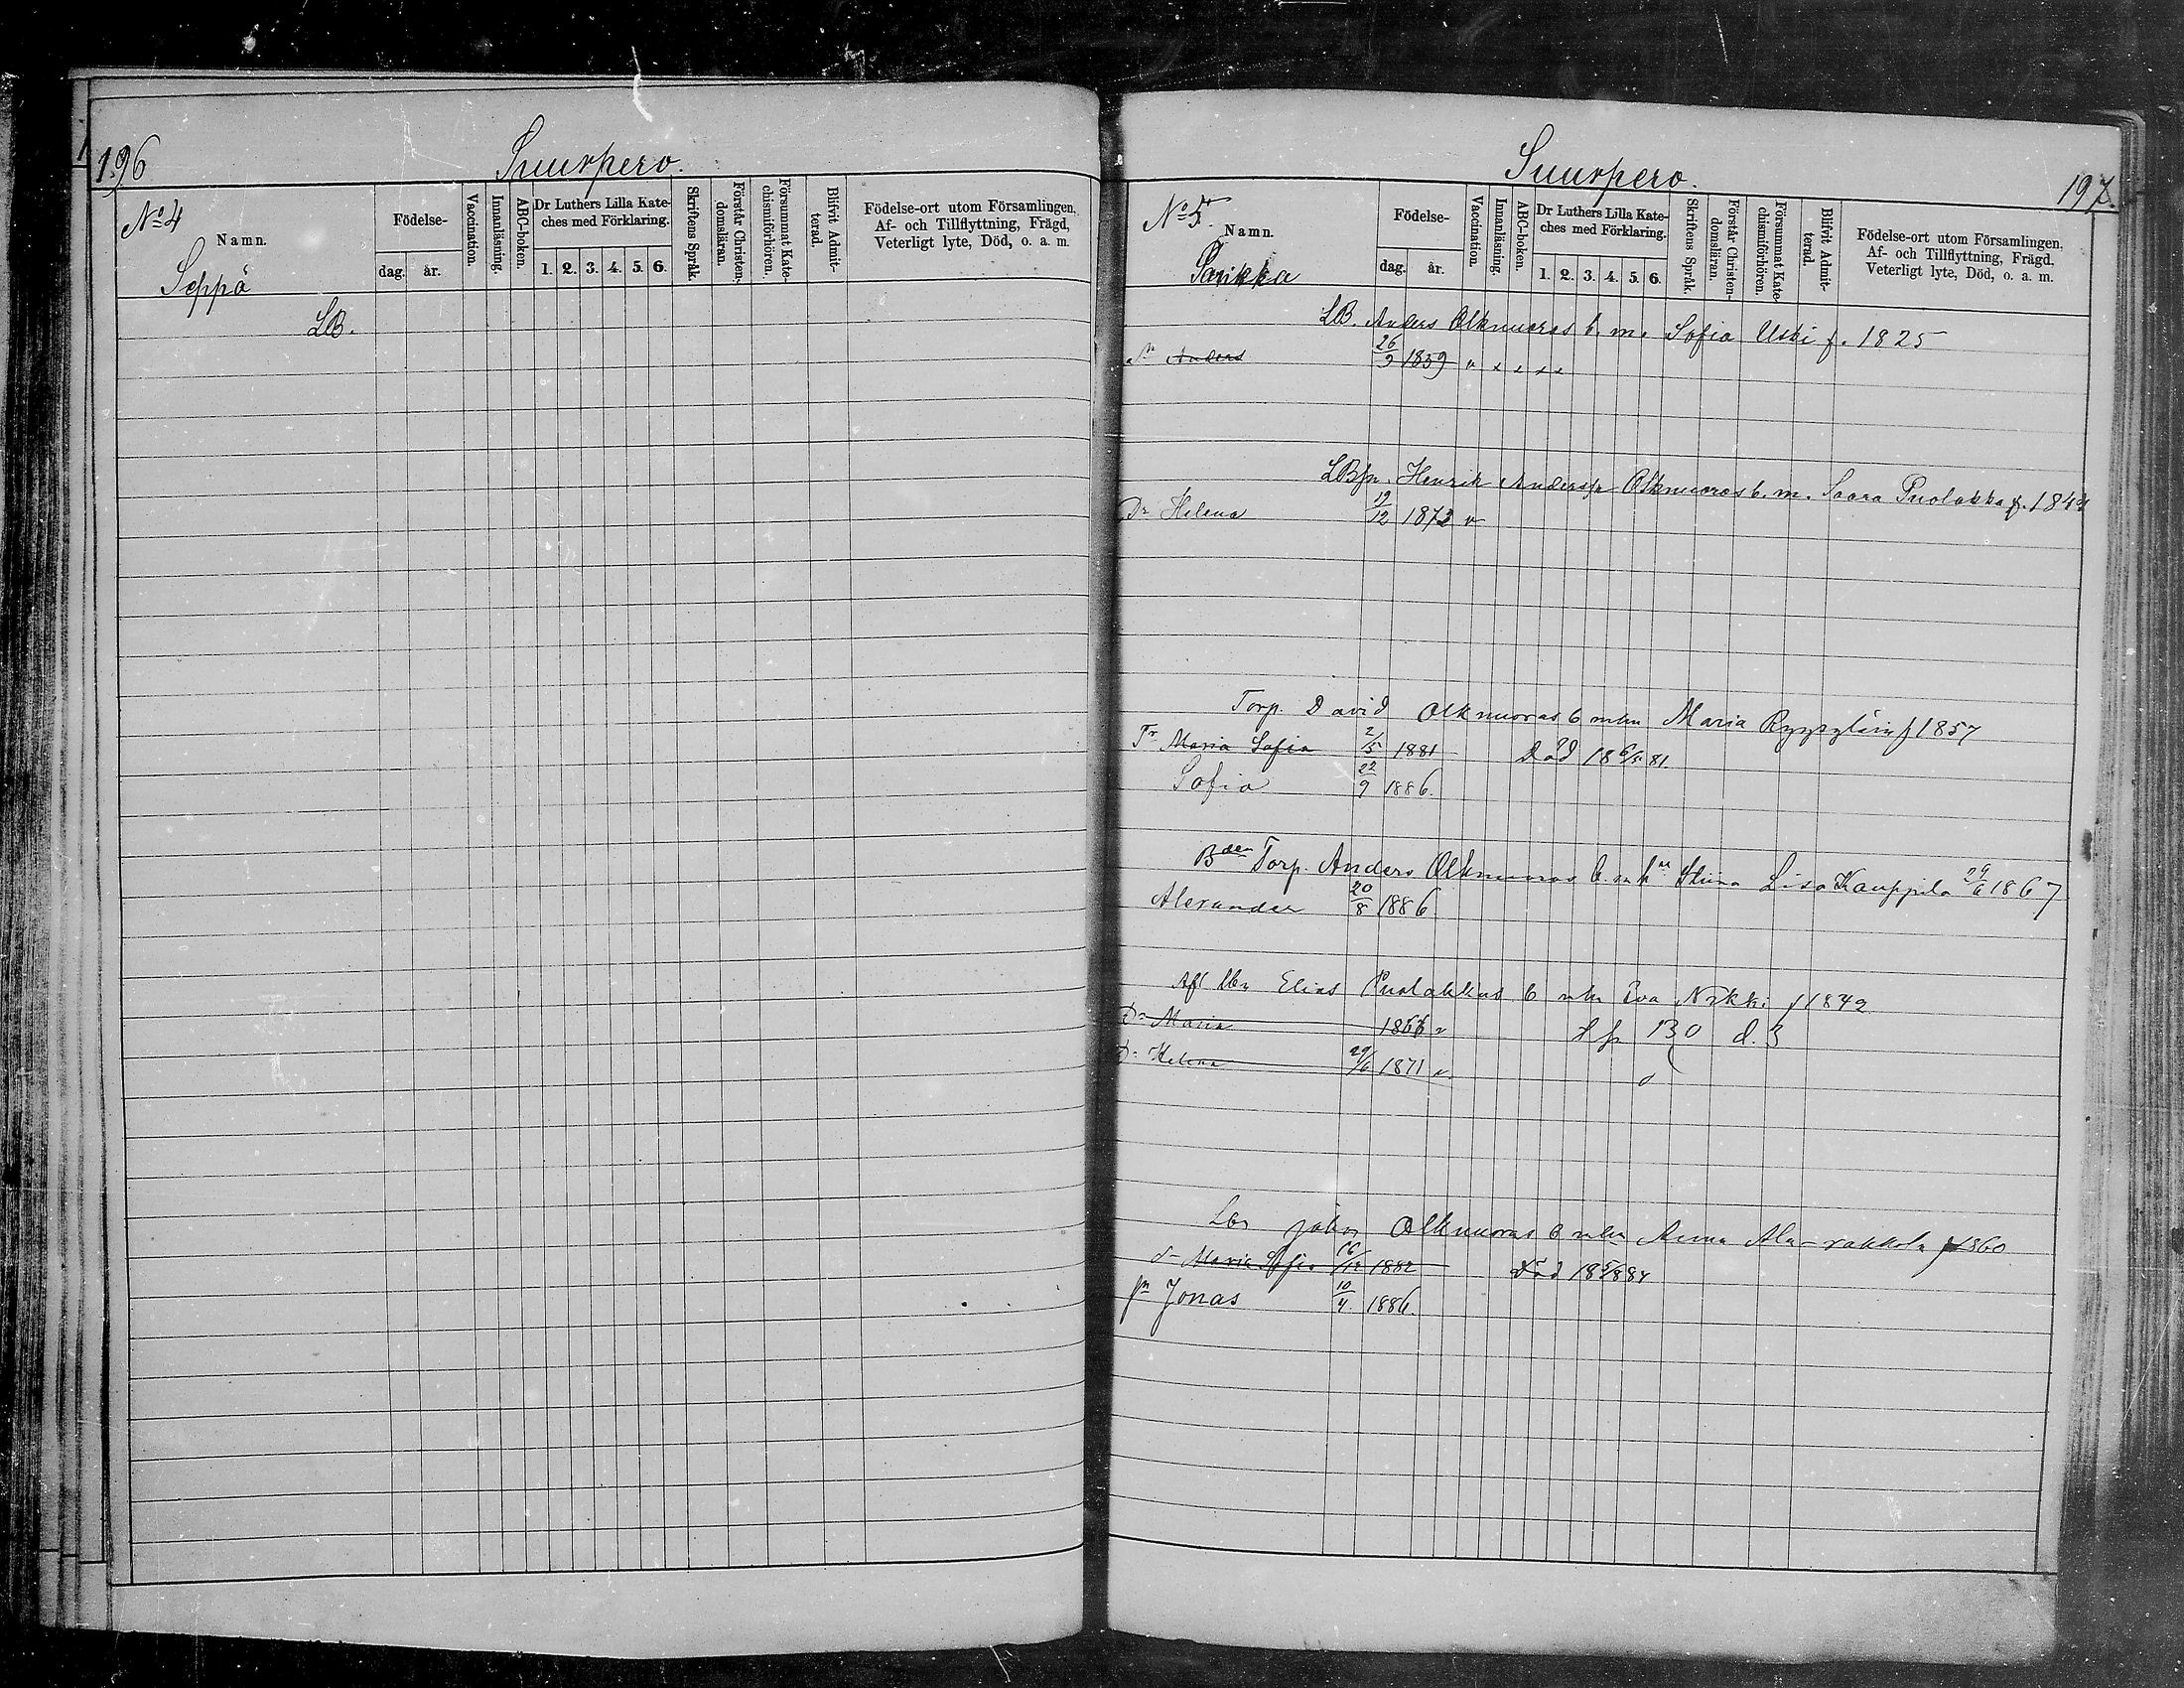 196
Suurpero.
No 4
Namn.
Seppä
Födelse-
dag.
år.
Vaccination.
Innanläsning.
ABC-boken.
Dr Luthers Lilla Kate-
ches med Förklaring.
1. 2. 3. 4. 5. 6.
Skriftens Språk.
Förstår Christen-
domsläran.
Försummat Kate-
chismiförhören.
Blifvit Admit-
terad.
Födelse-ort utom Församlingen,
Af- och Tillflyttning, Frägd,
Veterligt lyte, Död, o. a. m.
LB.
Suurpero.
197.
No 5.
Namn.
Parikka
Födelse-
dag.
år.
Vaccination.
Innanläsning.
ABC-boken.
Dr Luthers Lilla Kate-
ches med Förklaring.
1. 2. 3. 4. 5. 6.
Skriftens Språk.
Förstår Christen-
domsläran.
Försummat Kate-
chismiförhören.
Blifvit Admit-
terad.
Födelse-ort utom Församlingen,
Af- och Tillflyttning, Frägd,
Veterligt lyte, Död, o. a. m.
LB. Anders Olkinuoras b. m. Sofia Uski f. 1825
Anders 26/9 1859 v x x x x
Henrik Olkinuoras b. m. Saara Puolakka f. 1844
Dr Helena 19/12 1873 v
Torp. David Olkinuoras b mhu Maria f 1857
Dr Maria Sofia 2/5 1881 Död 18 6/5 81
Sofia 22/9 1886.
Torp. Anders Olkinuoras b. m. Stiina Lisa Kauppila 1867
Alexander 20/8 1886
Elias Puolakkas b mhu Eva Nikki f 1842
Dr Maria 1866 v 130 d. 3
Dr Helena 29/6 1871 v
Olkinuoras b mhu Anna f 1860
dr Maria Sofia 16/12 1882 Död 18 5/8 84
Jonas 10/4 1886.